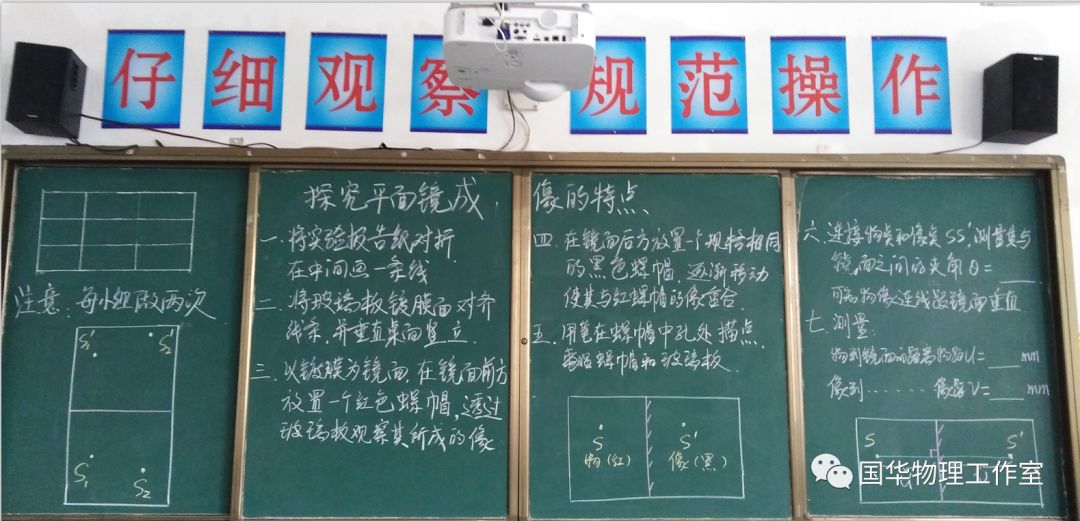 仔细观察 规范操作
注意:每小组做两次
S₁'
S₂'
S₁
S₂
探究平面镜成像的特点
一.将实验报告纸对折
在中间画一条线
二.将玻璃板镀膜面对齐
线条,并垂直桌面竖立.
三.以镀膜为镜面,在镜面前方
放置一个红色螺帽,透过
玻璃板观察其所成的像
四.在镜面后方放置一个规格相同
的黑色螺帽.逐渐移动
使其与红螺帽的像重合
五.用笔在螺帽中孔处描点.
螺帽和玻璃板.
S
物(红)
S'
像(黑)
六.连接物点和像点SS',测量其与
镜面之间的夹角θ=___
可知物像连线跟镜面垂直
七.测量:
物到镜面的距离物距U=___mm
像到……像距V=___mm
S
S'
国华物理工作室